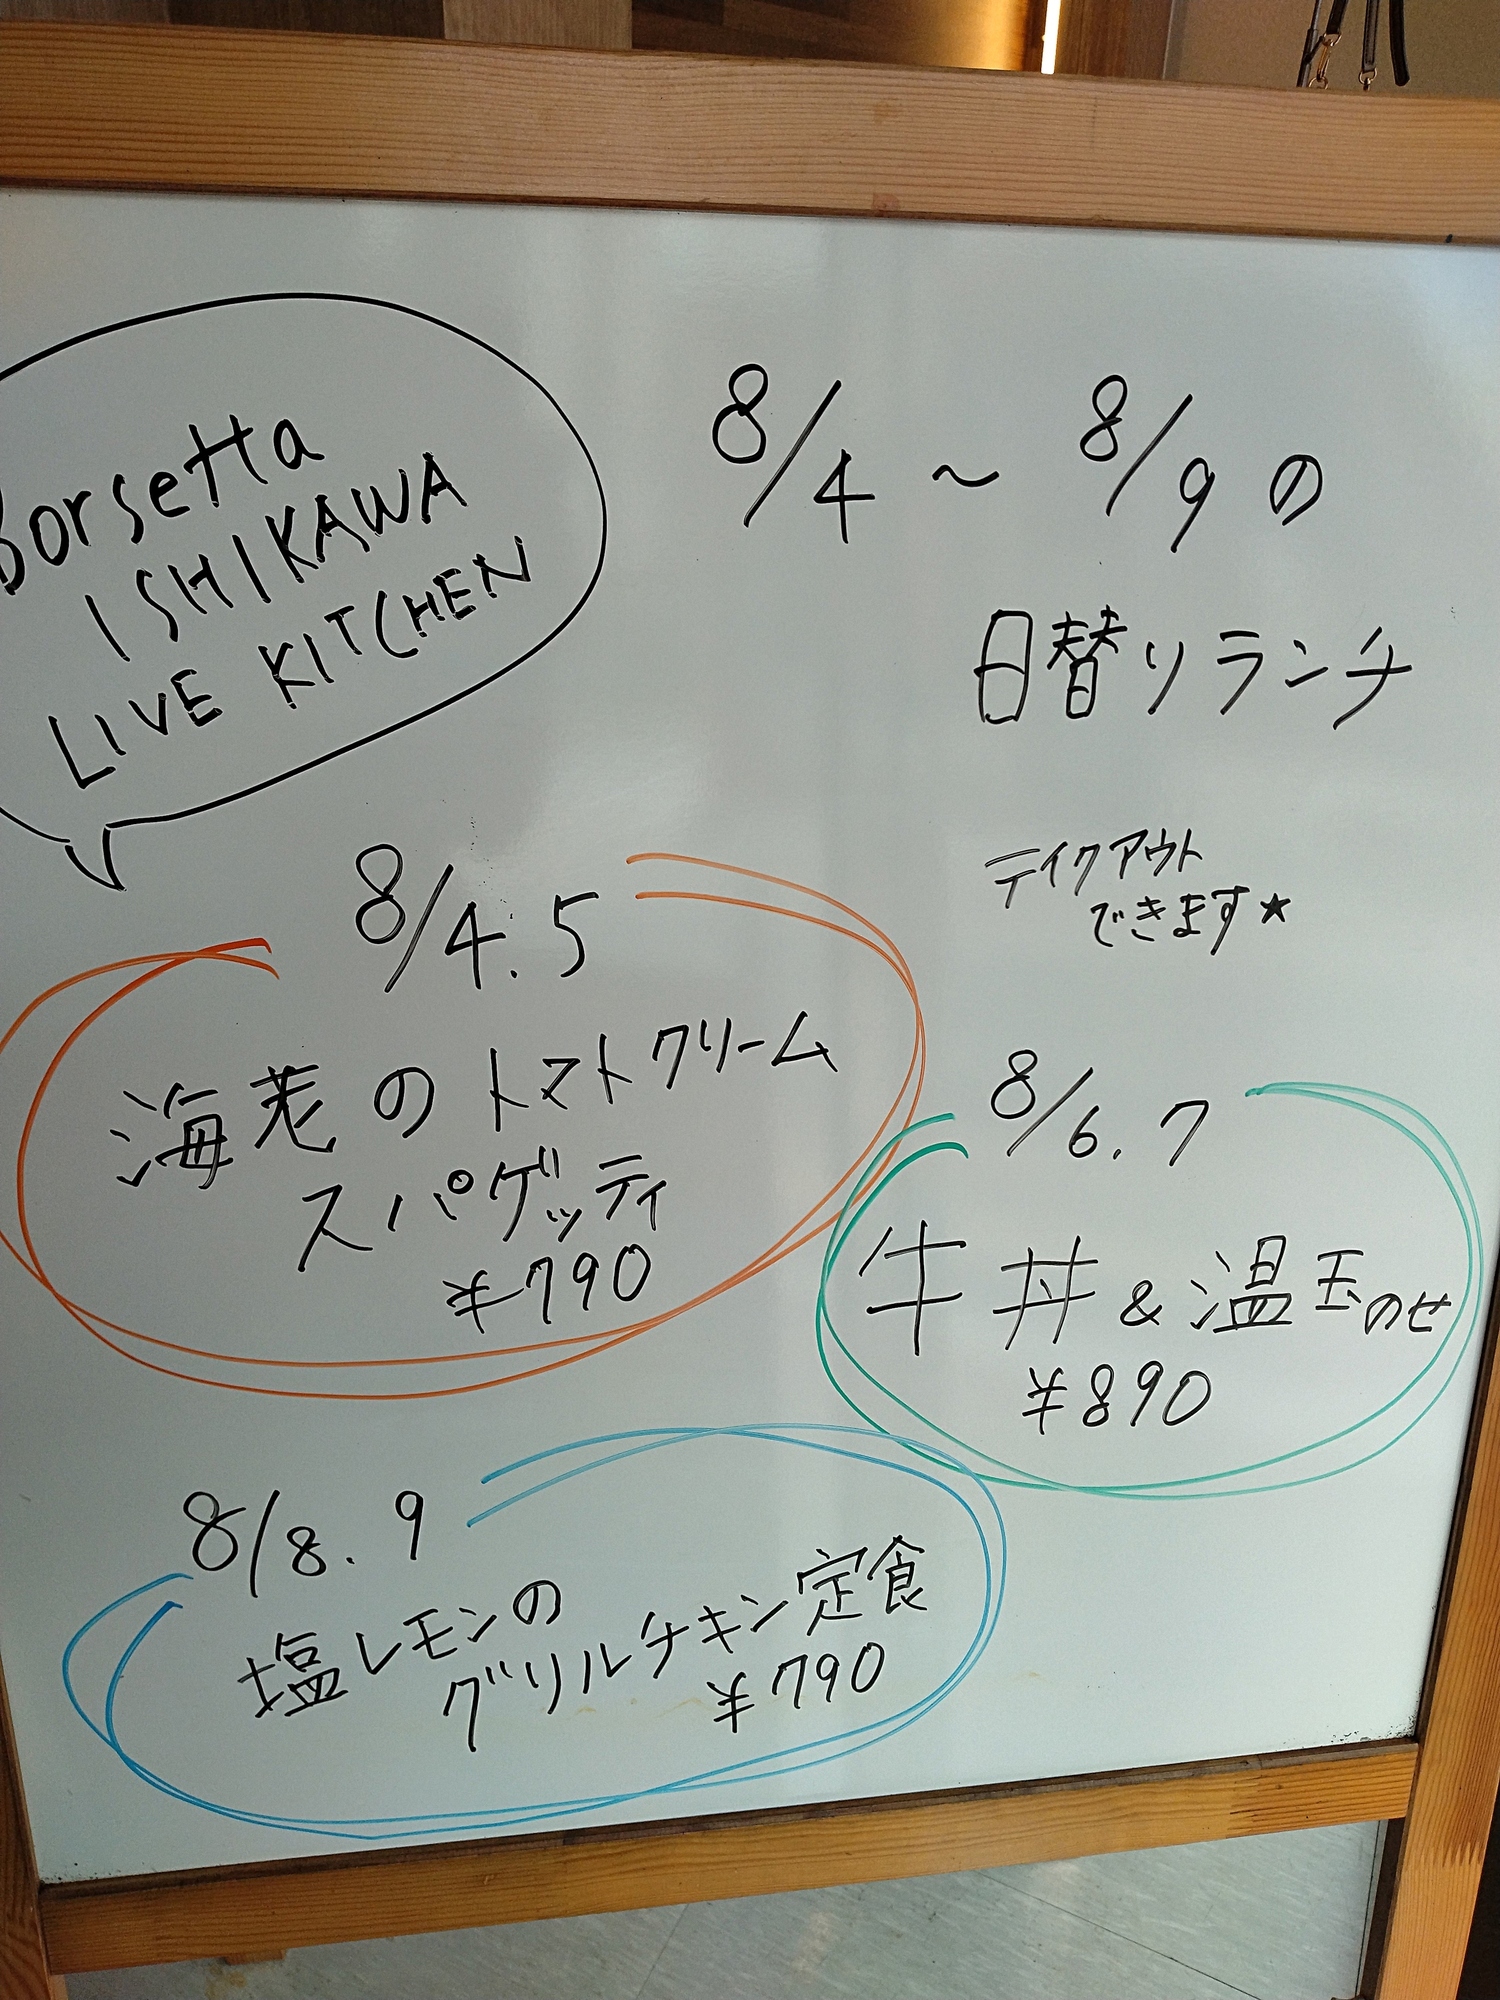 Borsetta
ISHIKAWA
LIVE KITCHEN
8/4～8/9の
日替りランチ
テイクアウト
できます★
8/4.5
海老のトマトクリーム
スパゲッティ
¥790
8/6.7
牛丼&温玉のせ
¥890
8/8.9
塩レモンの
グリルチキン定食
¥790